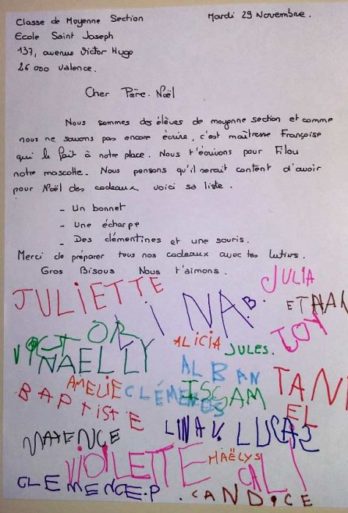 Classe de Moyenne Section Mardi 29 Novembre.
Ecole Saint Joseph
137, avenue Victor Hugo
26 000 Valence.
Cher Père-Noël
Nous sommes des élèves de moyenne section et comme
nous ne savons pas encore écrire, c'est maîtresse Françoise
qui le fait à notre place. Nous t'écrivons pour Filou
notre mascotte. Nous pensons qu'il serait content d'avoir
pour Noël des cadeaux voici sa liste.
- Un bonnet
- Une écharpe
- Des clémentines et une souris.
Merci de préparer tous nos cadeaux avec tes lutins.
Gros Bisous Nous t'aimons.
JULIETTE INA.B. JULIA
ETHAN
VICTOR ALICIA JOY
NAELLY JULES.
ALBAN
AMELIE CLÉMENCE ISSAM TANI
BAPTISTE EL
MAYENCE LINA.V. LUCAS
VIOLETTE MAËLYS
CLEMENCE.P. CANDICE